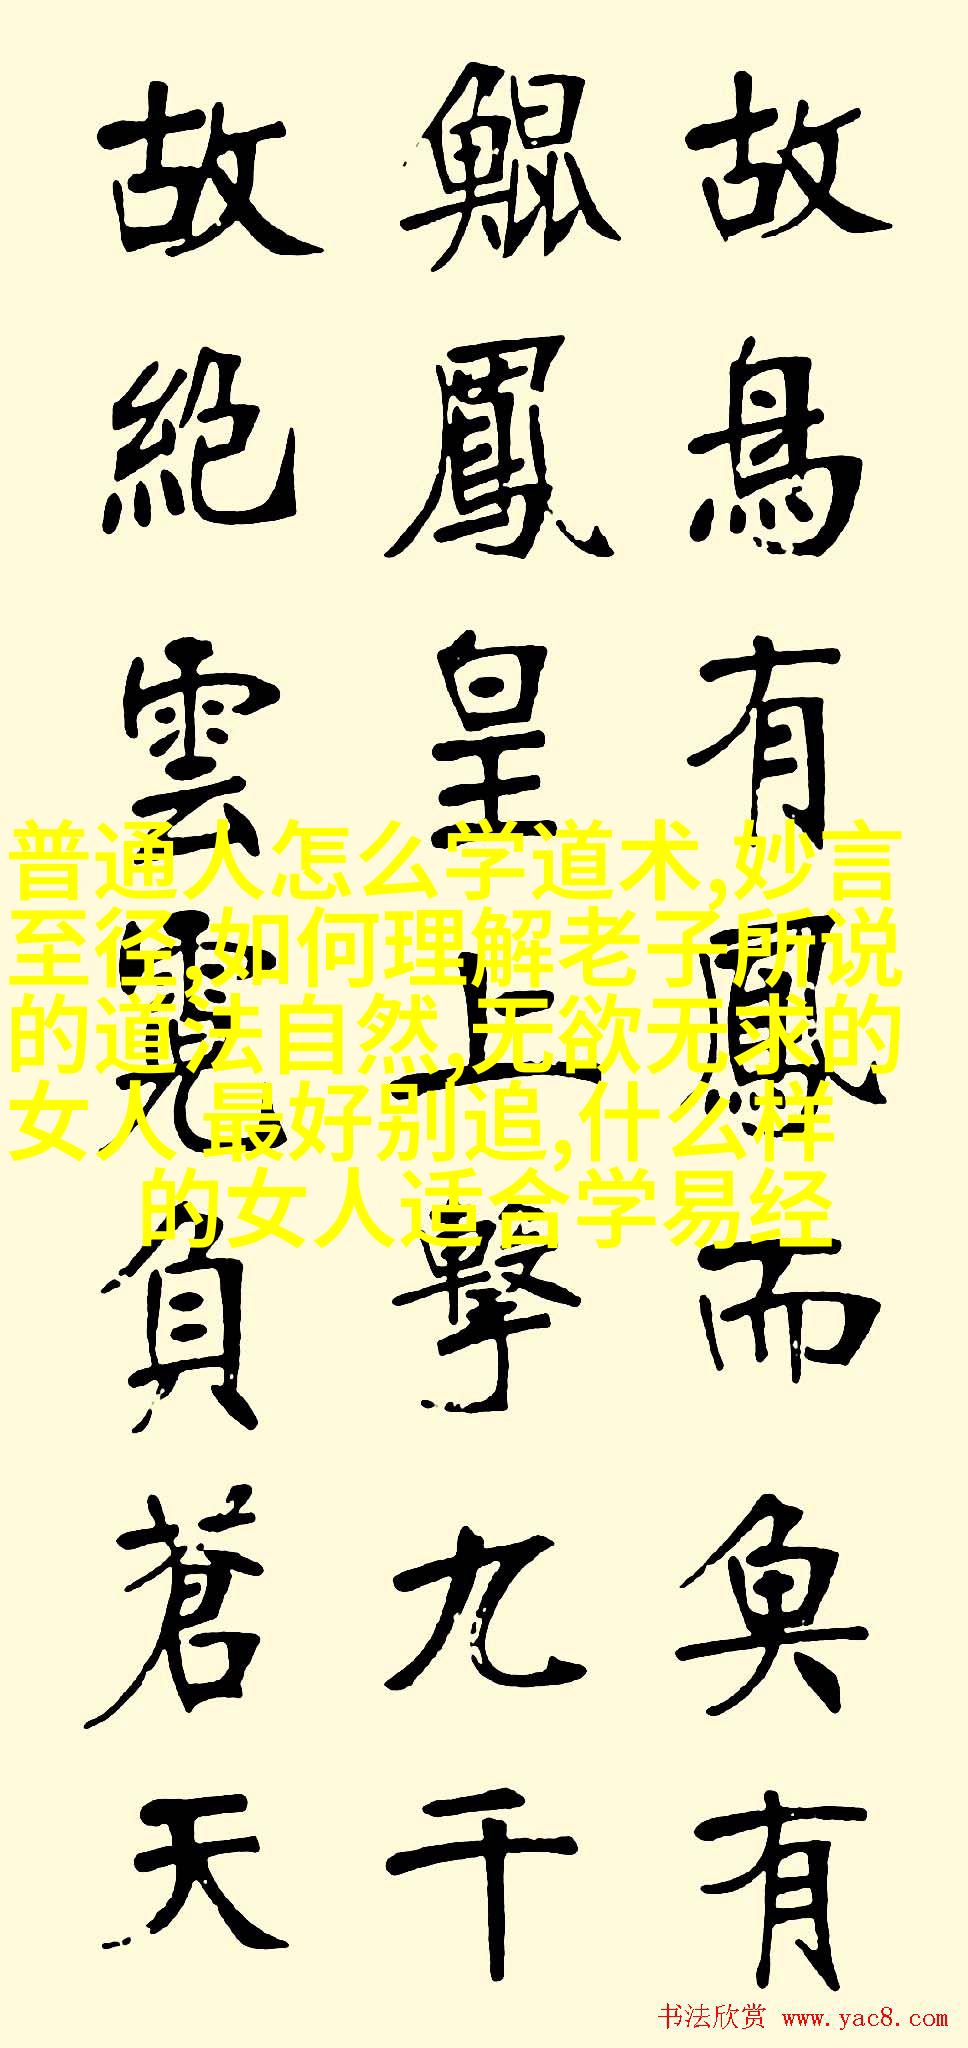 故鳥有鳳而魚有
鯤鳳皇上擊九千
故絕雲霓負蒼天
普通人怎么学道术,妙言
至径,如何理解老子所说
的道法自然,无欲无求的
女人 最好别追,什么样
的女人适合学易经
书法欣赏 www.yac8.com